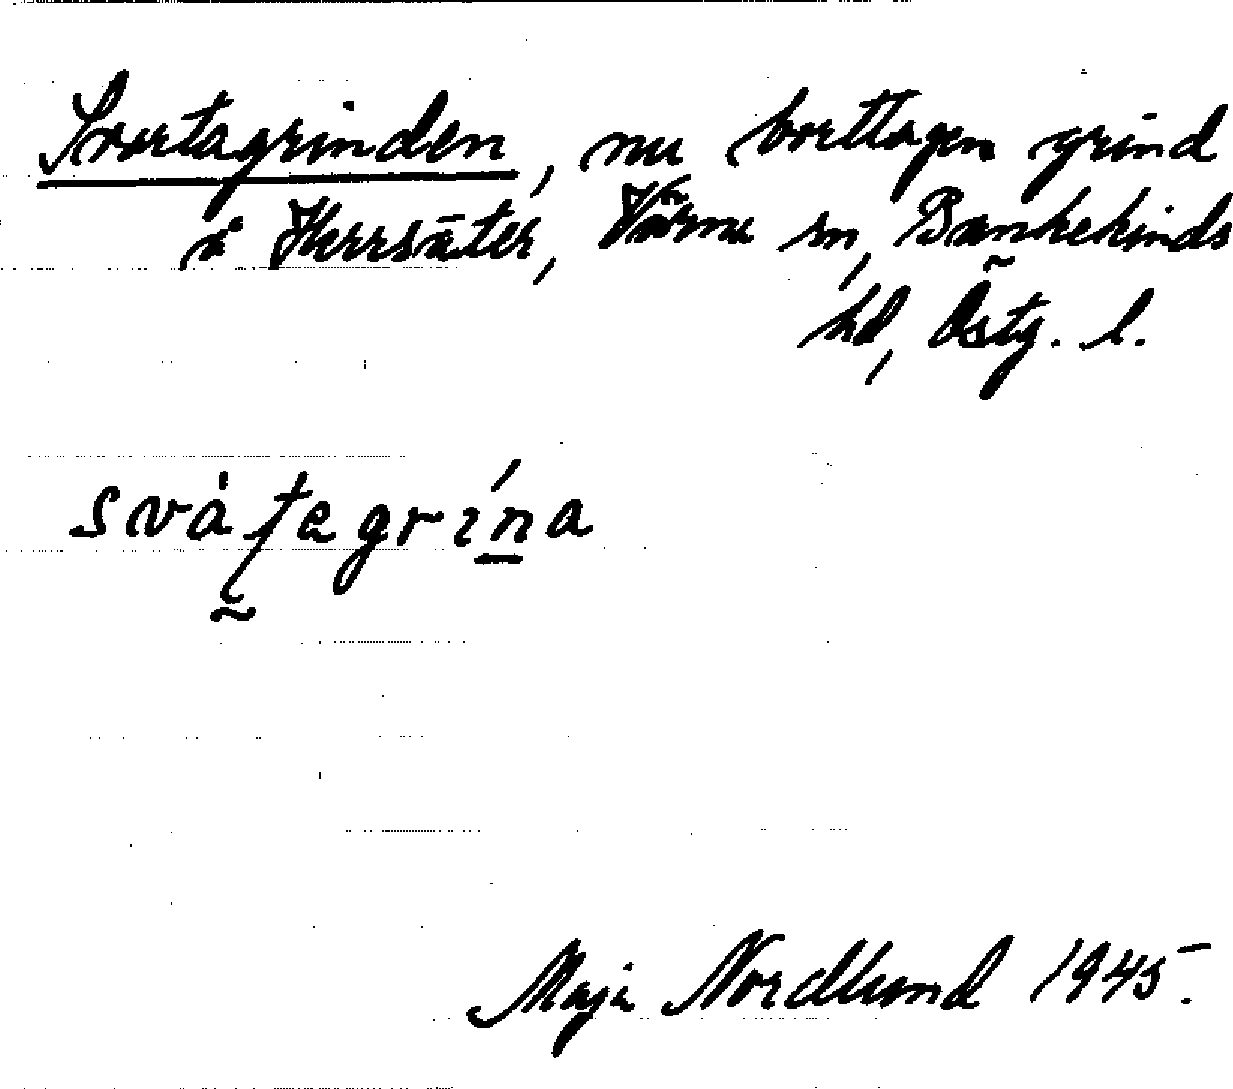 Svartagrinden, nu borttagen grind
å Herrsäter, Värna sn, Bankekinds
hd, Östg. l.
svàtagrína
Maja Nordlund 1945.